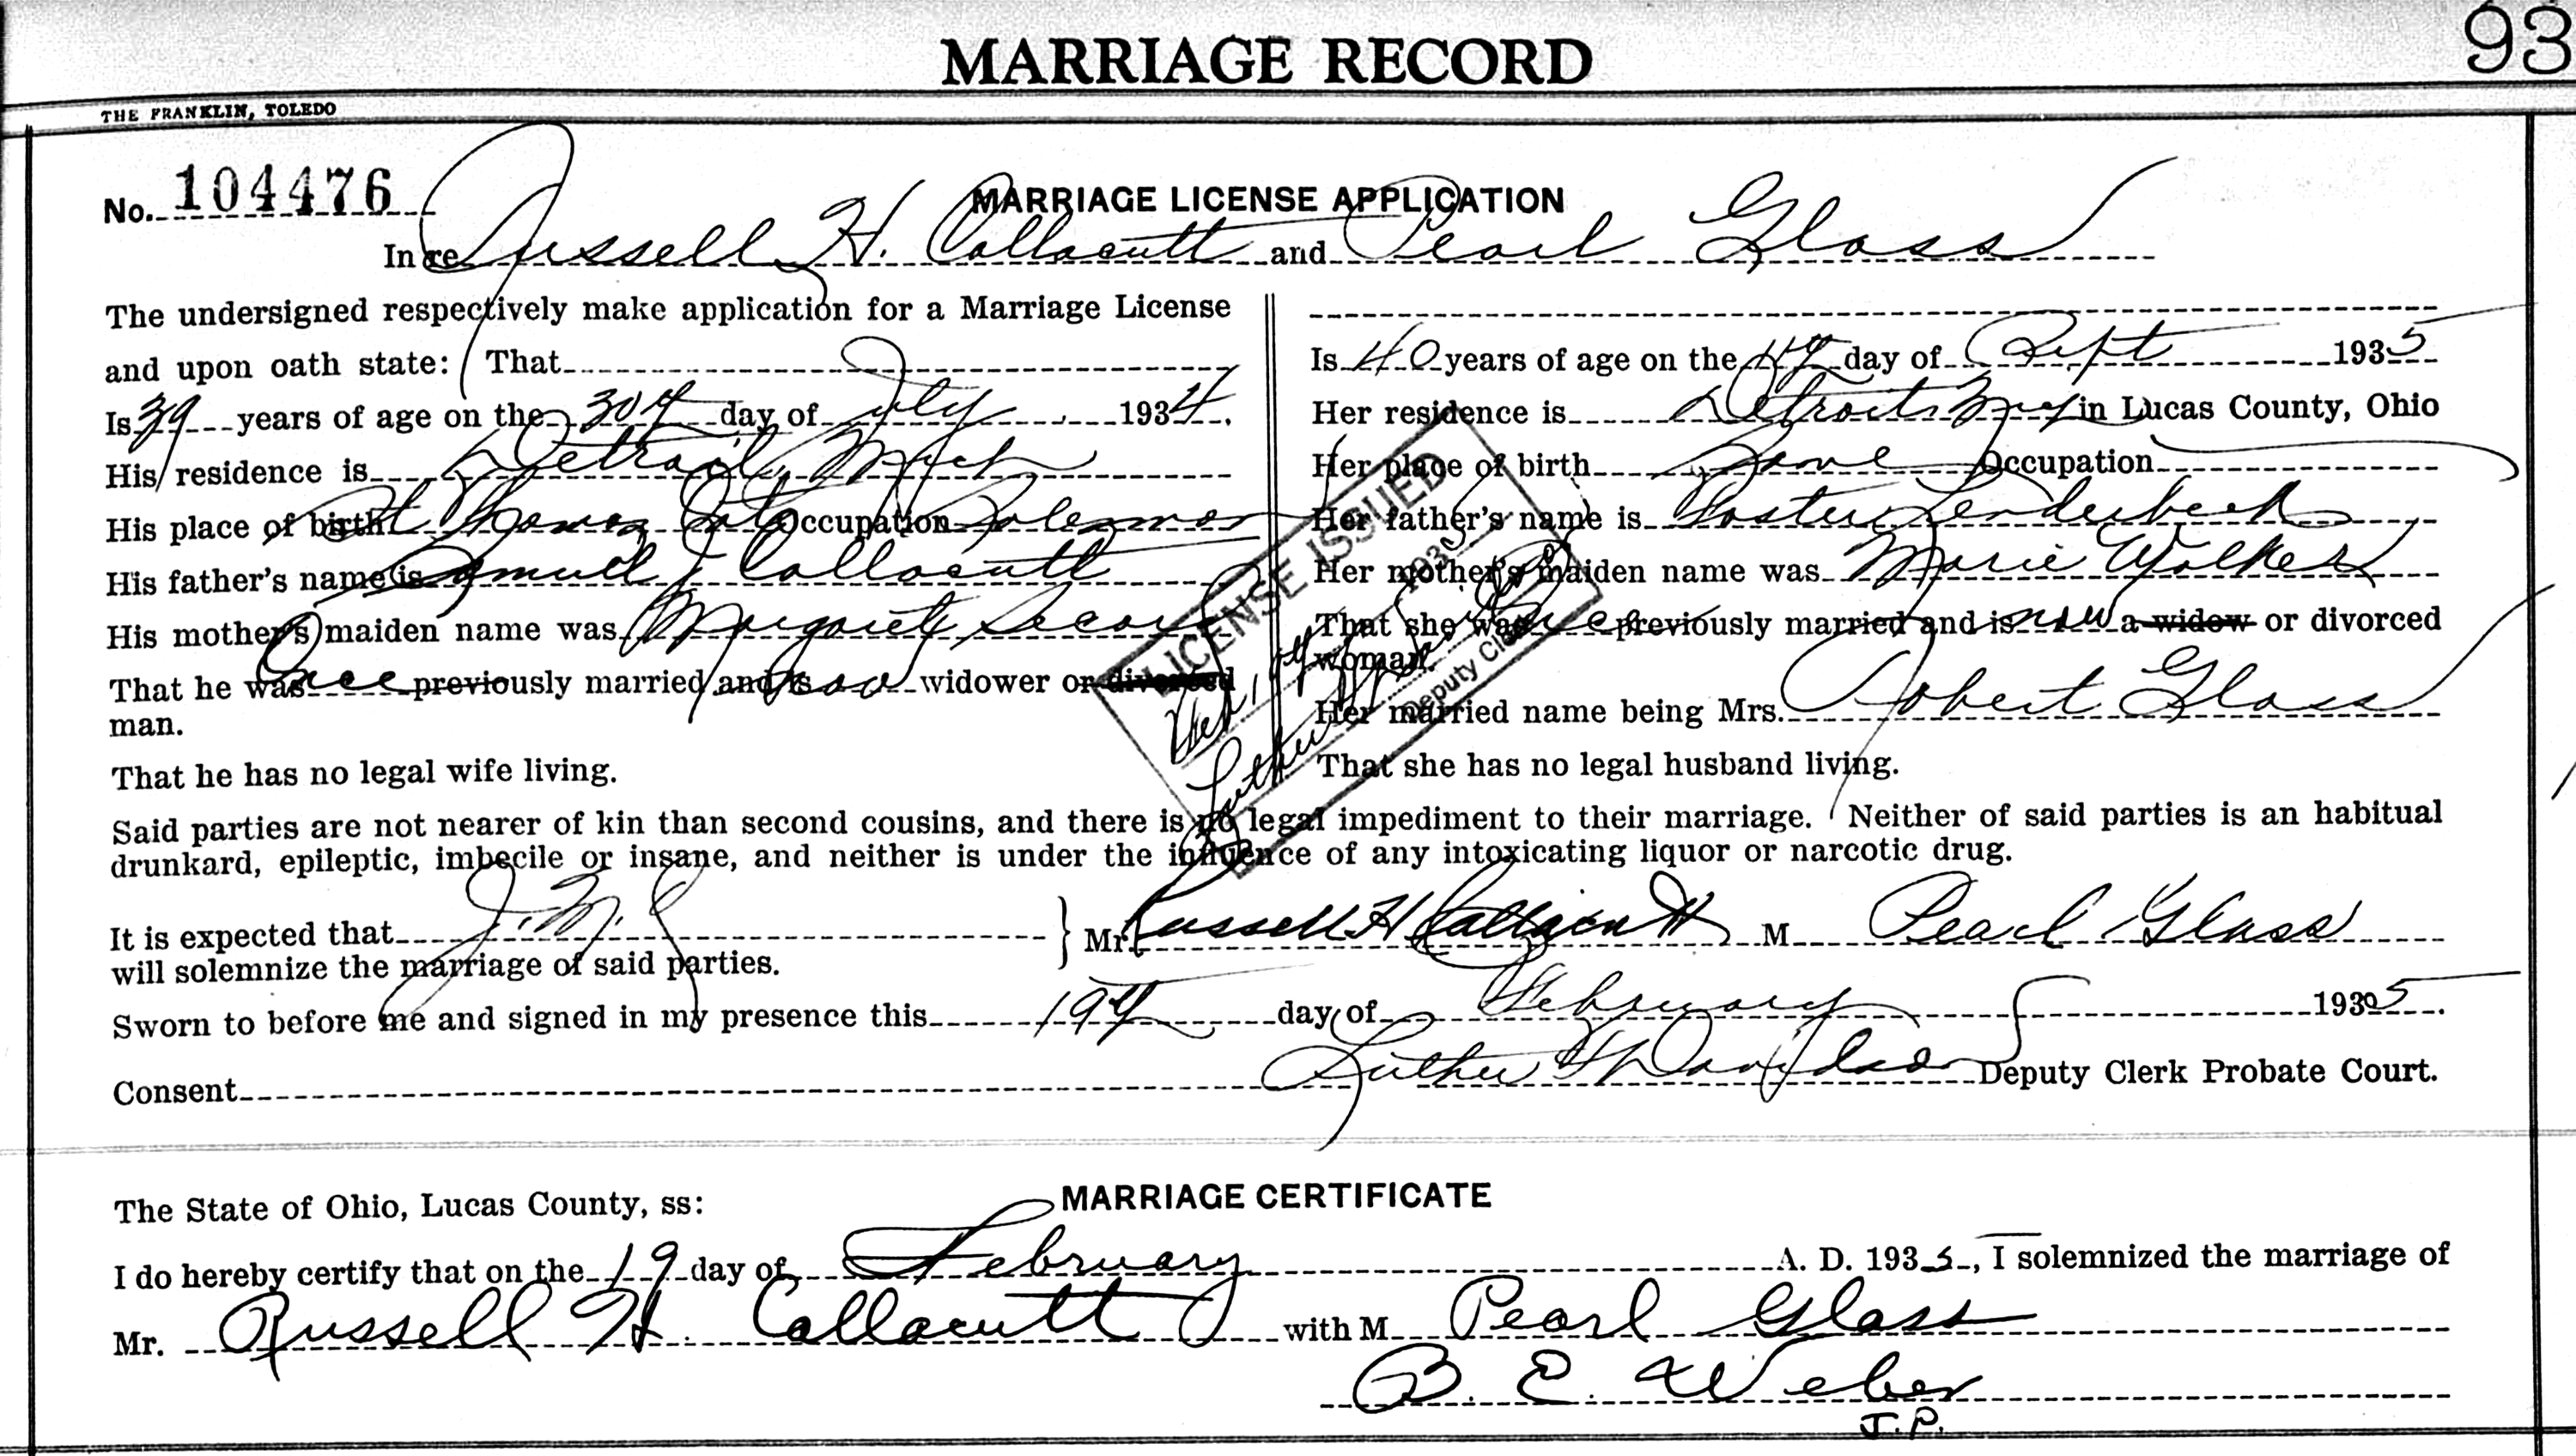 MARRIAGE RECORD
93
THE FRANKLIN, TOLEDO
No. 104476
MARRIAGE LICENSE APPLICATION
In re Russell H. Collacutt and Pearl Glass
The undersigned respectively make application for a Marriage License
and upon oath state: That
Is 39 years of age on the 30th day of July 1934.
His residence is Detroit, Mich
His place of birth St Thomas Occupation Salesman
His father's name is Samuel J Collacutt
His mother's maiden name was Margaret
That he was once previously married and is now widower or divorced
man.
That he has no legal wife living.
Is 40 years of age on the day of Sept 1935
Her residence is Detroit in Lucas County, Ohio
Her place of birth Occupation
Her father's name is Foster
Her mother's maiden name was Marie Walker
That she was once previously married and is now a widow or divorced
woman.
Her married name being Mrs. Robert Glass
That she has no legal husband living.
LICENSE ISSUED
Feb, 19 1935
Luther
Deputy Clerk
Said parties are not nearer of kin than second cousins, and there is no legal impediment to their marriage. Neither of said parties is an habitual
drunkard, epileptic, imbecile or insane, and neither is under the influence of any intoxicating liquor or narcotic drug.
It is expected that
will solemnize the marriage of said parties.
Mr. Russell H Collacutt M Pearl Glass
Sworn to before me and signed in my presence this 19th day of February 1935.
Consent Luther Deputy Clerk Probate Court.
MARRIAGE CERTIFICATE
The State of Ohio, Lucas County, ss:
I do hereby certify that on the 19 day of February A. D. 1935, I solemnized the marriage of
Mr. Russell H. Collacutt with M Pearl Glass
B. E. Weber
J.P.